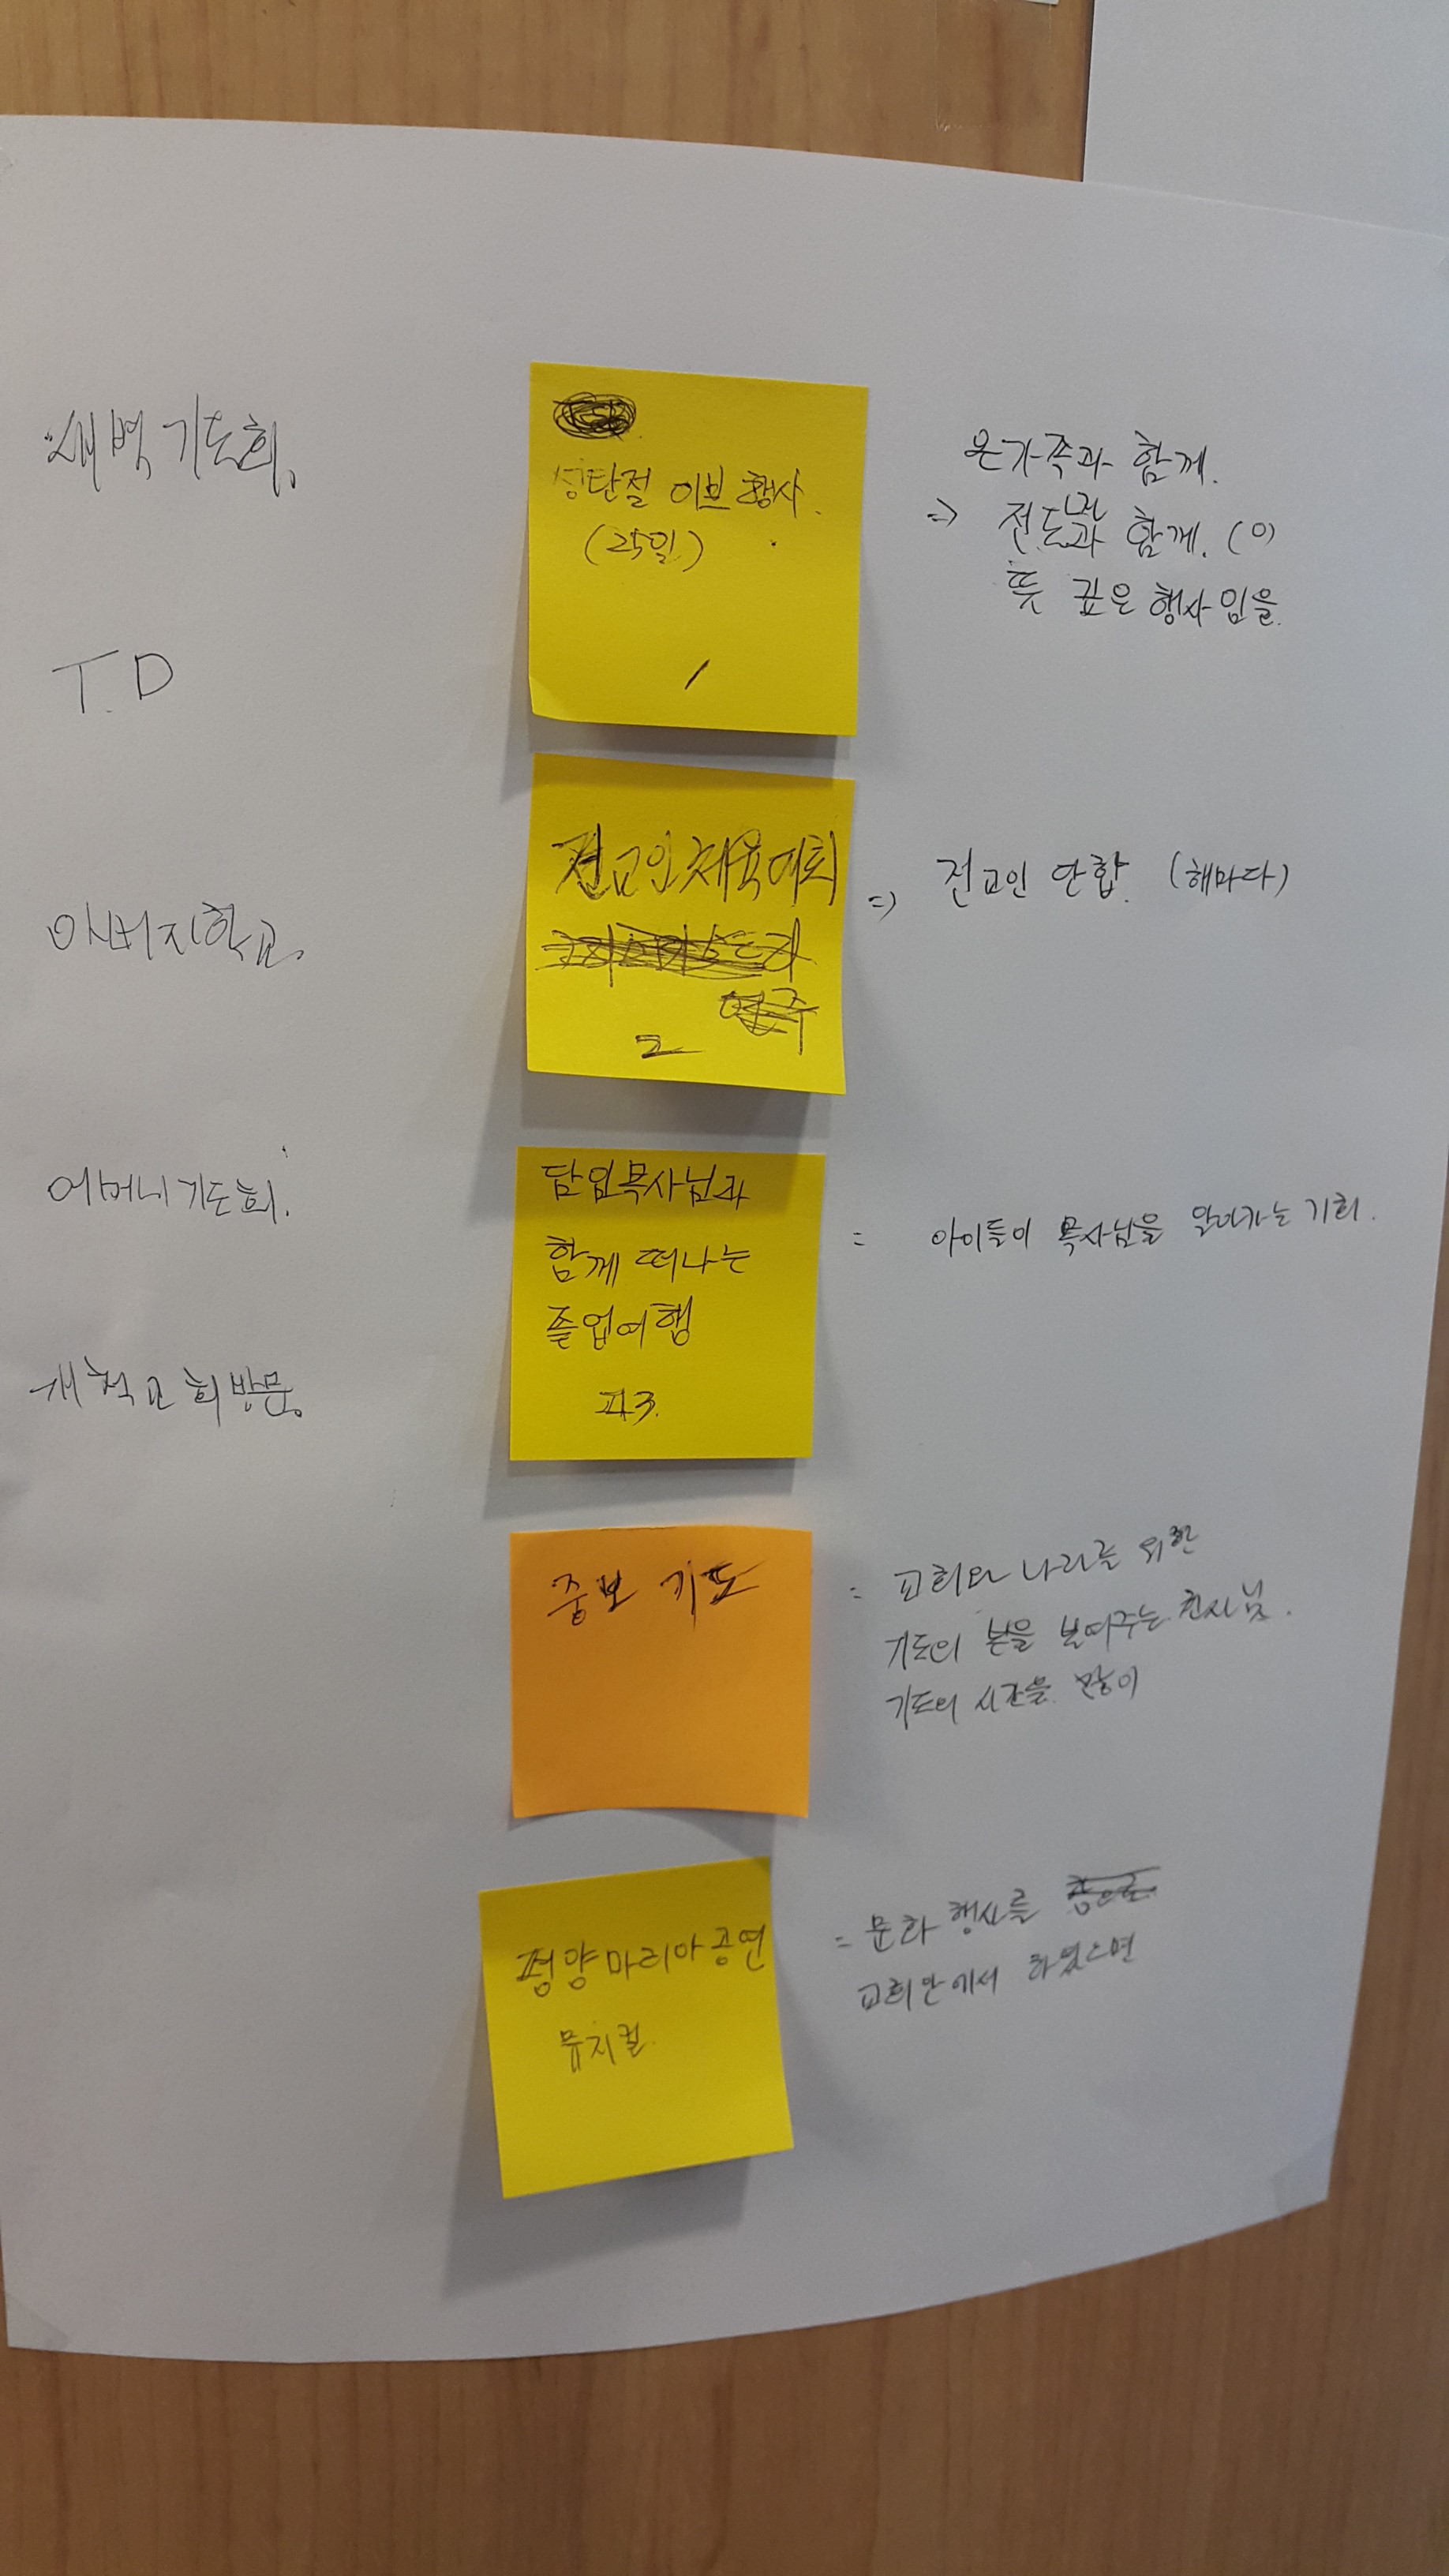 새벽기도회.
T.D
아버지학교.
어머니기도회.
개척교회방문.
성탄절 이브 행사.
(25일)
1
온가족과 함께.
⇒ 전도과 함께. (이)
뜻 깊은 행사임을
전교인체육대회
2
⇒ 전교인 단합. (해마다)
담임목사님과
함께 떠나는
졸업여행
3.
= 아이들이 목사님을 알아가는 기회.
중보 기도
= 교회와 나라를 위한
기도의 본을 보여주는
기도의 시간을 많이
평양마리아공연
뮤지컬.
= 문화 행사를
교회안에서 하였으면